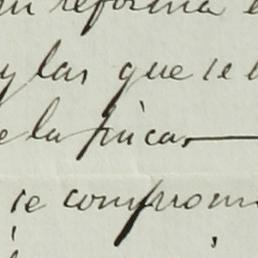 reforma
y las que se
la finca,
se comprom